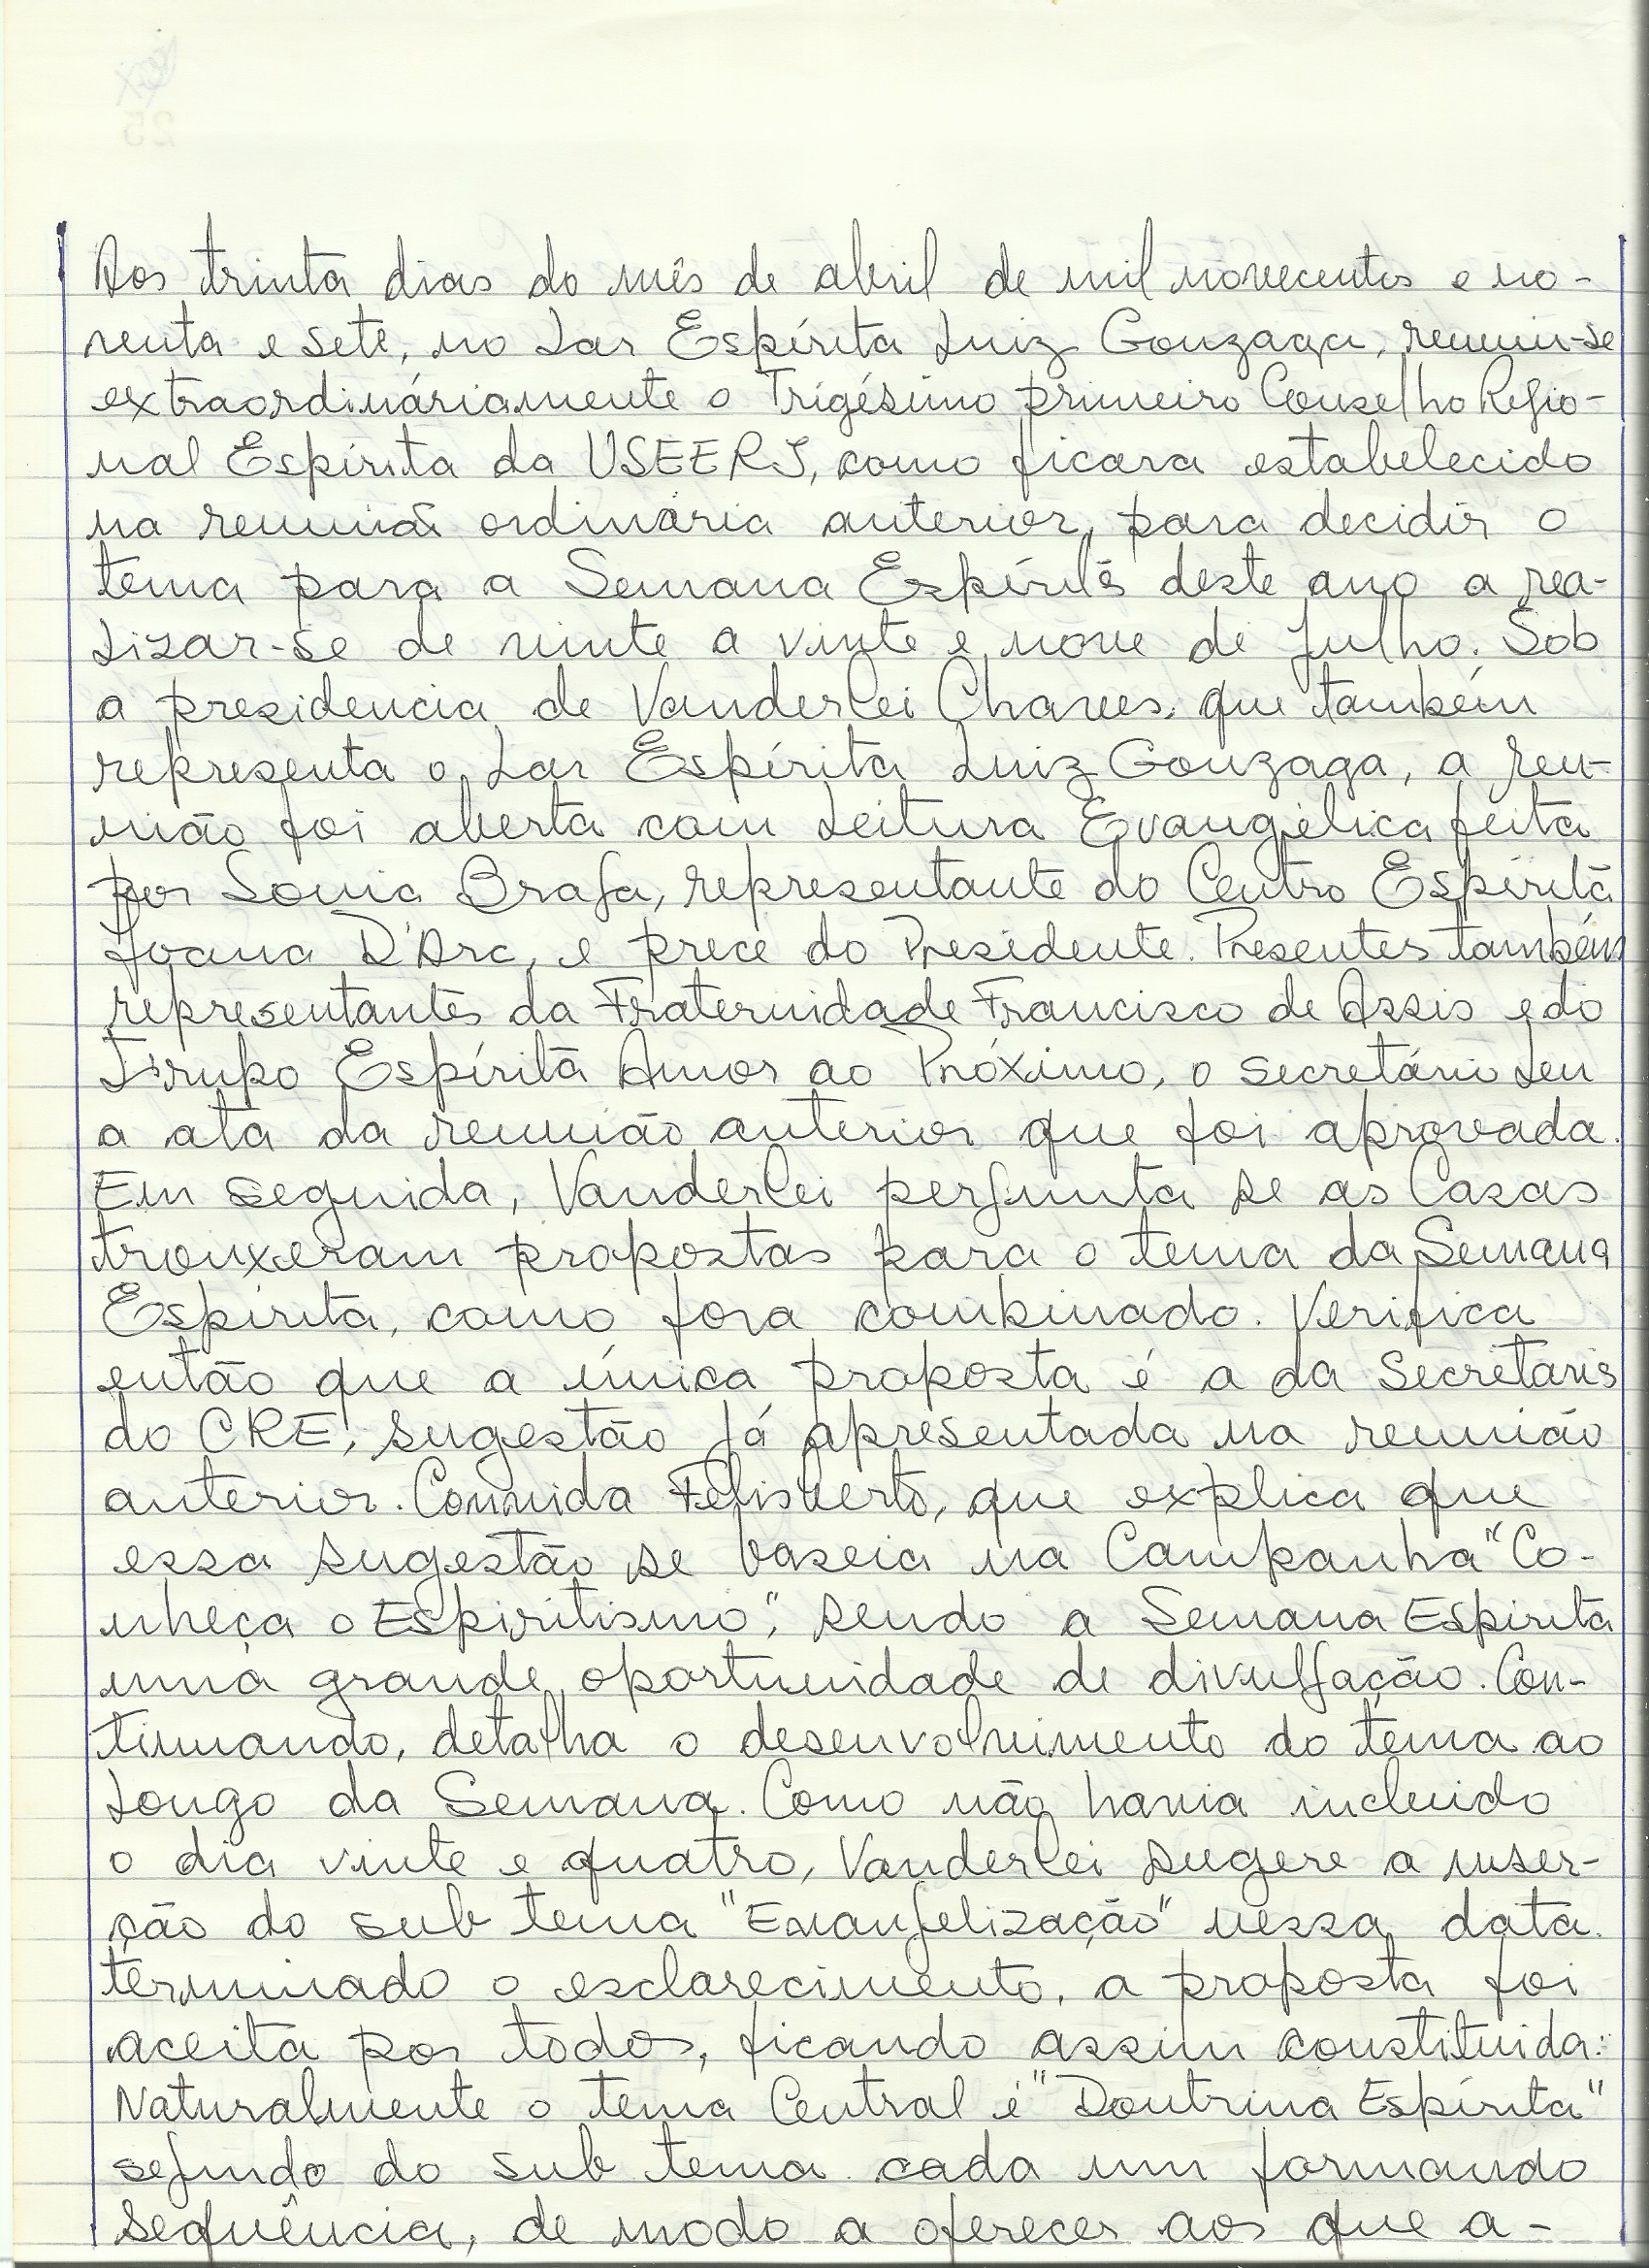 Aos trinta dias do mês de abril de mil novecentos e no-
venta e sete, no Lar Espírita Luiz Gonzaga, reuniu-se
extraordináriamente o Trigésimo primeiro Conselho Regio-
nal Espírita da USEERJ, como ficara estabelecido
na reunião ordinária anterior, para decidir o
tema para a Semana Espírita deste ano a rea-
lizar-se de vinte a vinte e nove de julho. Sob
a presidencia de Vanderlei Chaves, que também
representa o Lar Espírita Luiz Gonzaga, a reu-
nião foi aberta com leitura Evangélica feita
por Sonia Braga, representante do Centro Espírita
Joana D'Arc, e prece do Presidente. Presentes também
representantes da Fraternidade Francisco de Assis e do
Grupo Espírita Amor ao Próximo, o secretário leu
a ata da reunião anterior que foi aprovada.
Em seguida, Vanderlei pergunta se as Casas
trouxeram propostas para o tema da Semana
Espírita, como fora combinado. Verifica
então que a única proposta é a da Secretaria
do CRE, sugestão já apresentada na reunião
anterior. Convida Felisberto, que explica que
essa sugestão se baseia na Campanha "Co-
nheça o Espiritismo", sendo a Semana Espírita
uma grande oportunidade de divulgação. Con-
tinuando, detalha o desenvolvimento do tema ao
longo da Semana. Como não havia incluido
o dia vinte e quatro, Vanderlei sugere a inser-
ção do sub tema "Evangelização" nessa data.
terminado o esclarecimento, a proposta foi
aceita por todos, ficando assim constituida:
Naturalmente o tema Central é "Doutrina Espírita"
segundo do sub tema cada um formando
sequência, de modo a oferecer aos que a-